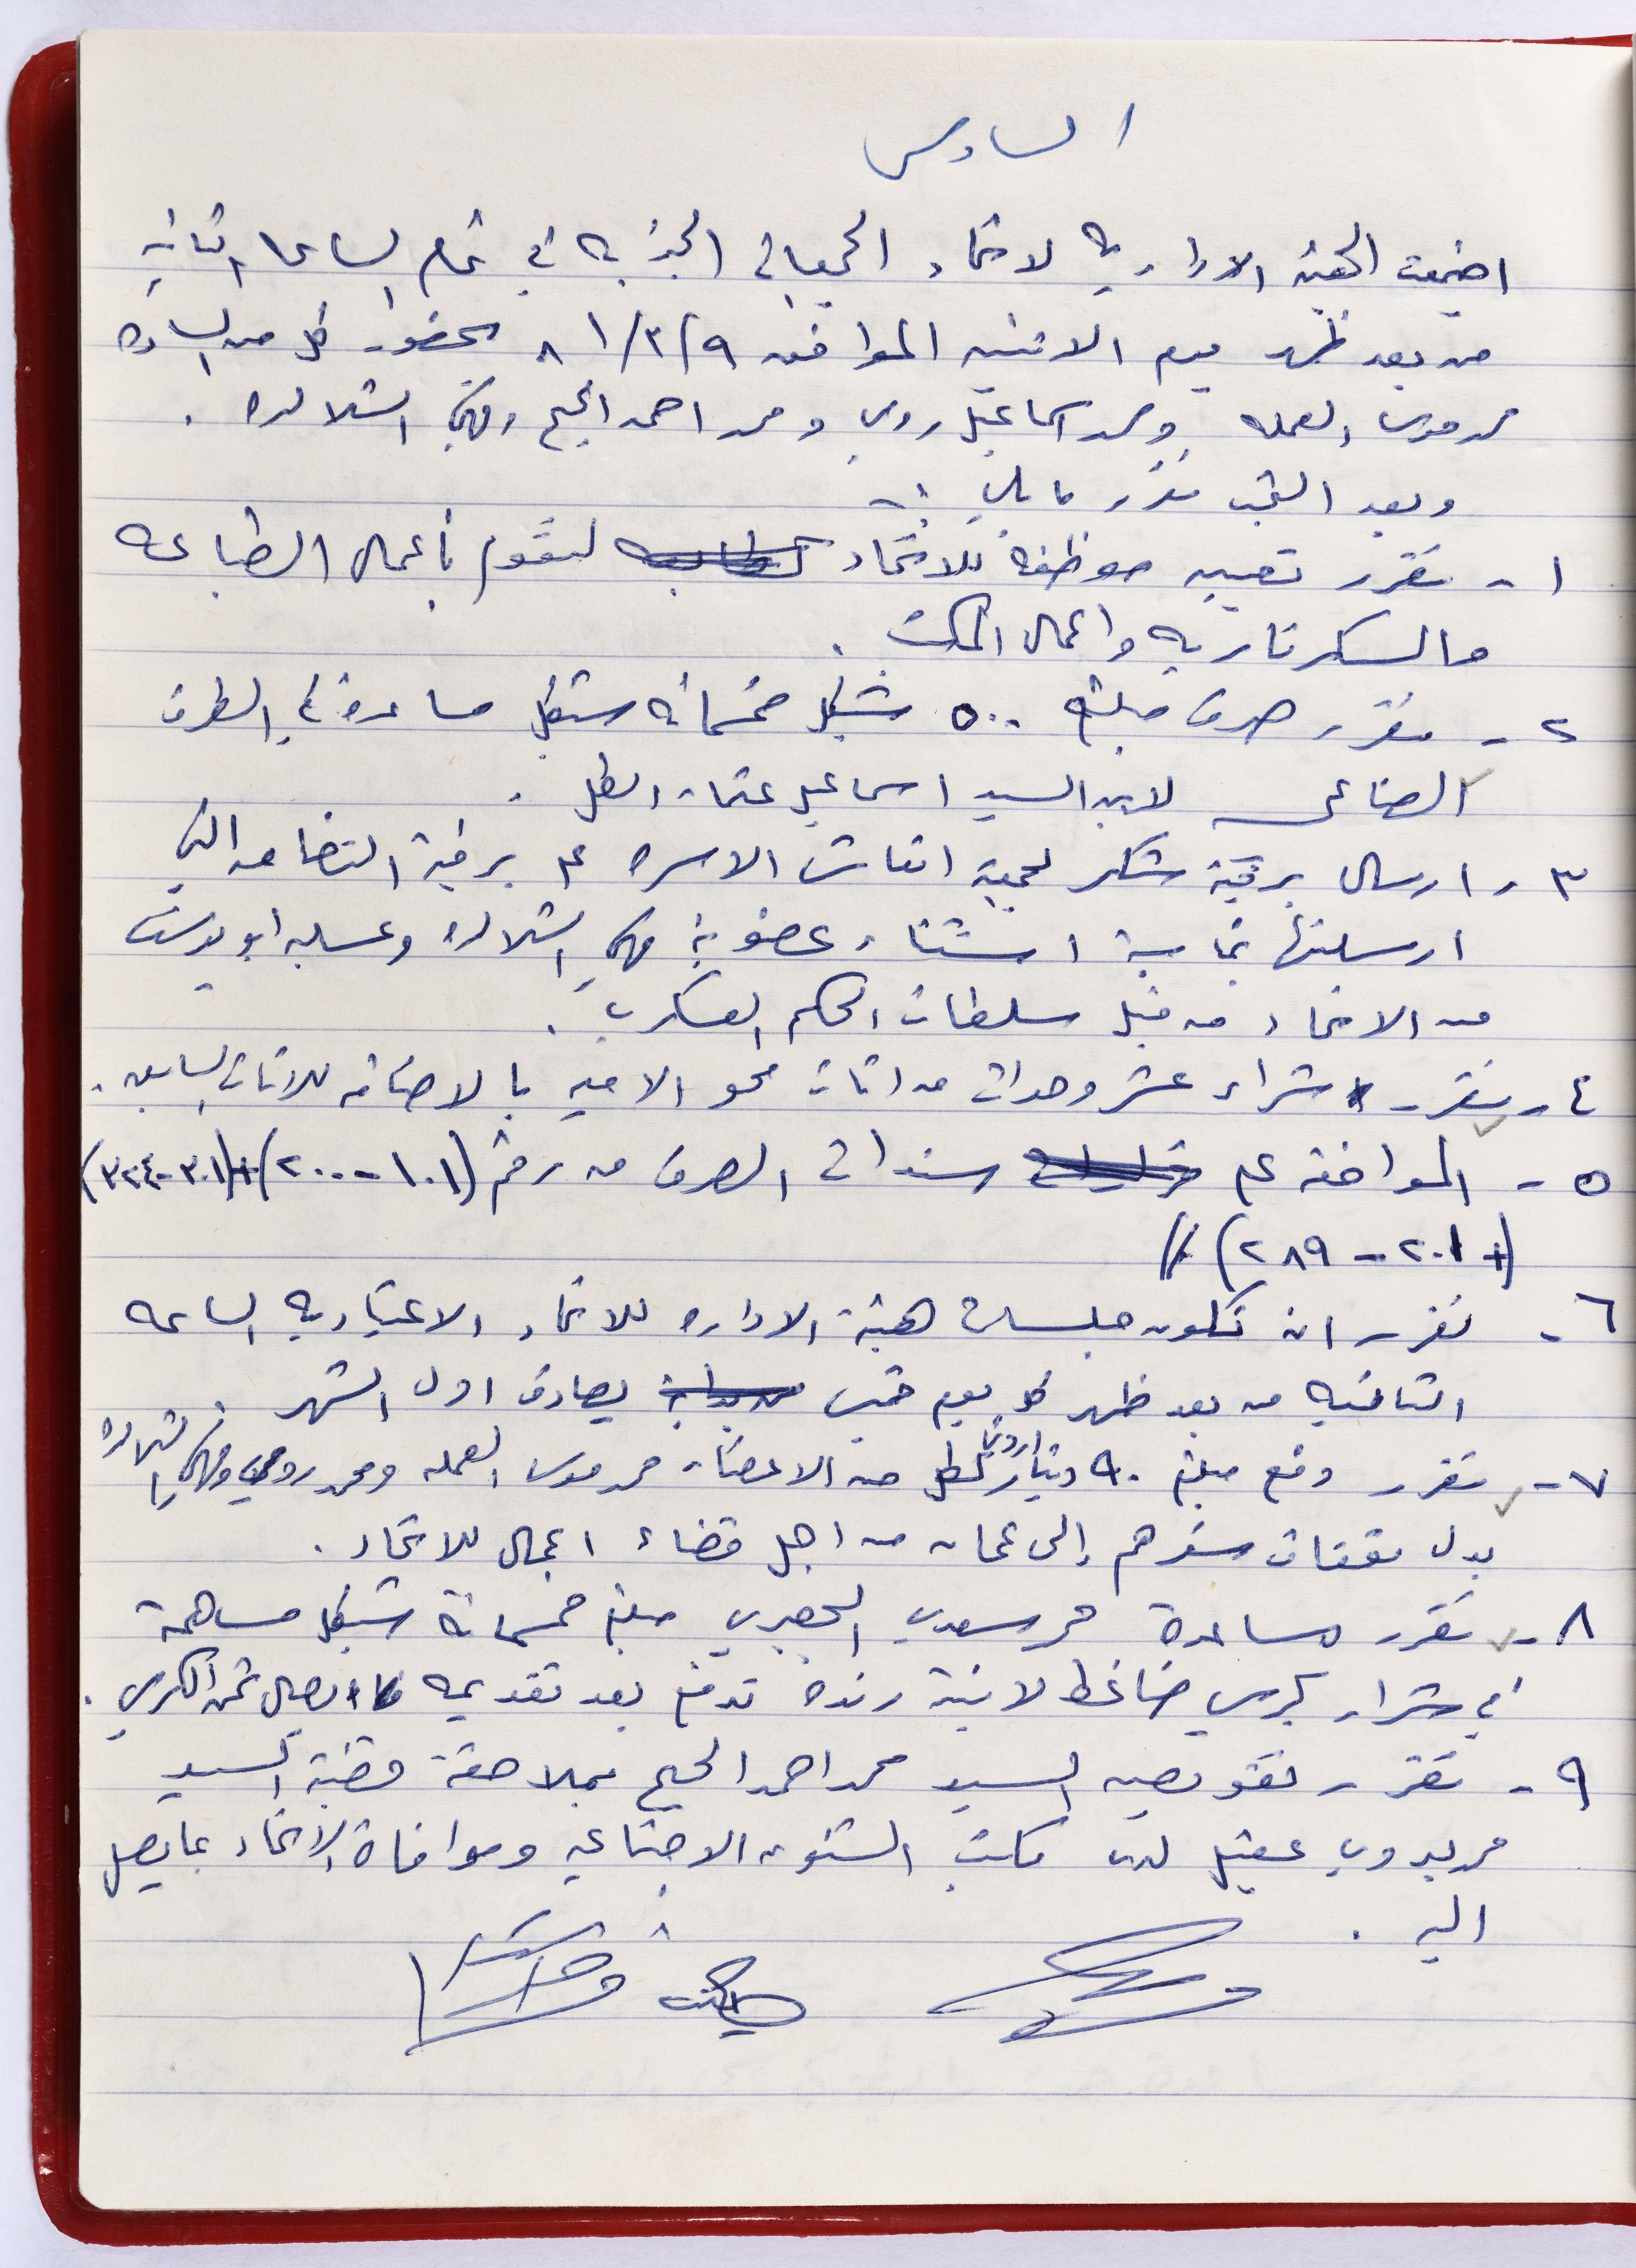 السادس
اجتمعت الهيئة الادارية لاتحاد الجمعيات الخيرية في تمام الساعة الثانية
من بعد ظهر يوم الاثنين الموافق ٩/٣/٨١ بحضور كل من السادة
محمد موسى العمله ومحمد اسماعيل رومي ومحمد احمد الحيح وفهمي الشلالده .
وبعد البحث تقرر ما يلي :-
١ - تقرر تعيين موظفة للاتحاد لتقوم بأعمال الطباعه
والسكرتاريه واعمال المكتب .
٢ - تقرر صرف مبلغ ٥٠٠ شيكل خمسمائه شيكل مساعدة في الطرف
الصناعي لابن السيد اسماعيل عثمان الطل .
٣ - ارسال برقية شكر لجمعية انعاش الاسره على برقية التضامن التي
ارسلتها بمناسبة استثناء عضوية فهمي الشلالده وعسله ابو يوسف
من الاتحاد من قبل سلطات الحكم العسكري .
٤ - تقرر شراء عشر وحدات من اثاث محو الاميه بالاضافه للاثاث السابق .
٥ - الموافقه على سندات الصرف من رقم (١٠١ - ٢٠٠) + (٣٠١ - ٣٢٤)
+ (٢٠١ - ٢٨٩) //
٦ - تقرر ان تكون جلسات هيئة الاداره للاتحاد الاعتياديه الساعه
الثانيه من بعد ظهر كل يوم خميس يصادف اول الشهر .
٧ - تقرر دفع مبلغ ٩٠ دينار اردني لكل من الاعضاء محمد موسى العمله ومحمد رومي وفهمي الشلالده
بدل نفقات سفرهم إلى عمان من اجل قضاء اعمال للاتحاد .
٨ - تقرر مساعدة محمد سعدي الجعبري مبلغ خمسمائة شيكل مساهمة
في شراء كرسي ضاغط لابنة رنده تدفع بعد تقديمه ايصال ثمن الكرسي .
٩ - تقرر تفويض السيد محمد احمد الحيح بملاحقة قضية السيد
محمد بدوي عقيل لدى مكتب الشئون الاجتماعيه وموافاة الاتحاد بما يصل
اليه .